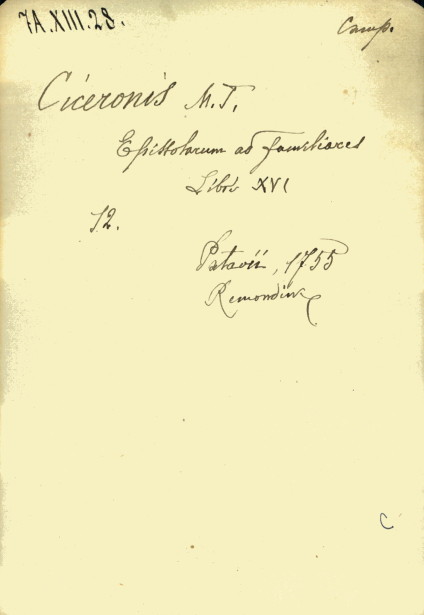 7A.XIII.28.
Camp.
Ciceronis M.T.
Epistolarum ad familiares
Libri XVI
12.
Patavii, 1755
Remondini
C